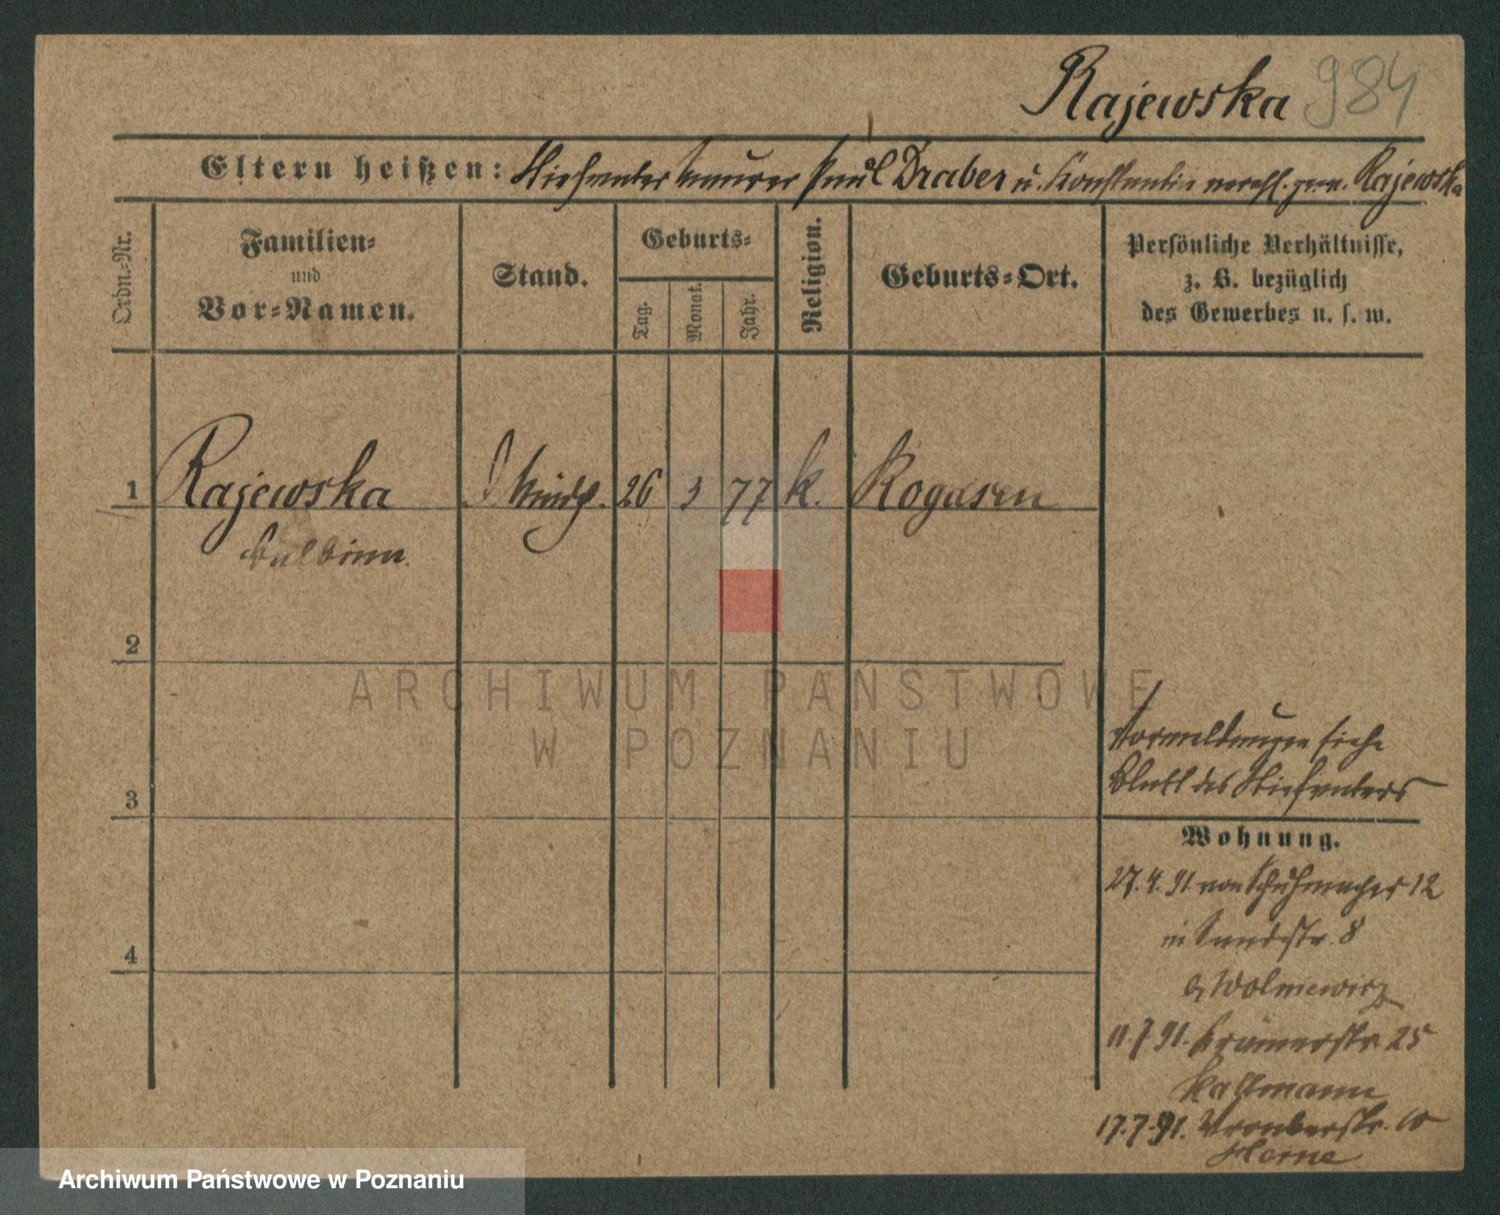 Rajewska 984
Eltern heißen: Stiefvater Maurer Paul Draber u. Konstantia verehl. gew. Rajewska
Ordn.-Nr.
Familien-
und
Vor-Namen.
Stand.
Geburts-
Tag.
Monat.
Jahr.
Religion.
Geburts-Ort.
Persönliche Verhältnisse,
z. B. bezüglich
des Gewerbes u. s. w.
1 Rajewska 26 3 77 k. Rogasen
2
ARCHIWUM PAŃSTWOWE
W POZNANIU
Vormeldungen siehe
3 Blatt des Stiefvaters
Wohnung.
27.4.91 von Schuhmacher 12
in Sandstr. 8
b/ Wolniewicz
4
11.7.91. Krämerstr. 25
17.7.91. Wronkerstr. 10
Herne
Archiwum Państwowe w Poznaniu